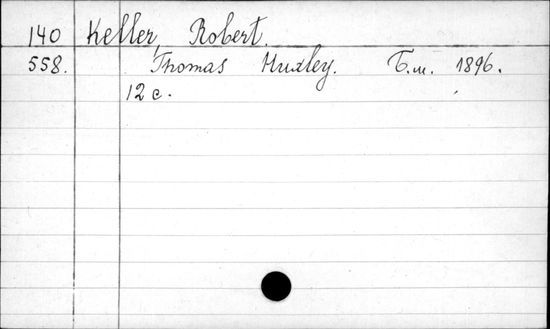 140 Keller, Robert.
558. Thomas Huxley. Б.м. 1896.
12 с.